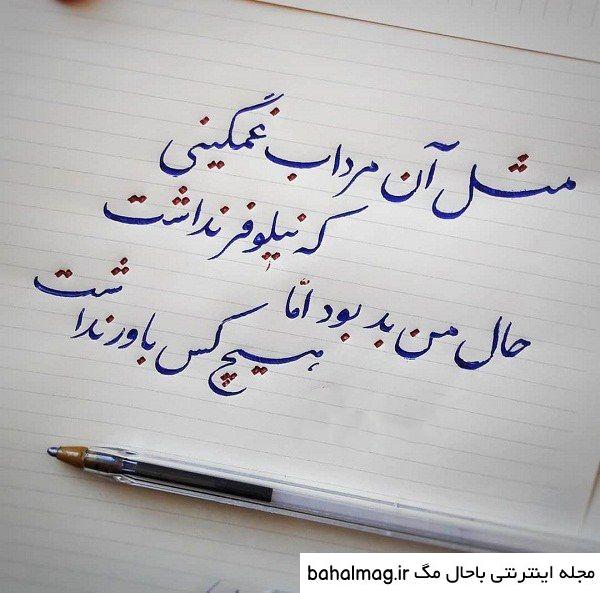 مثل آن مرداب غمگینی
که نیلوفر نداشت
حال من بد بود امّا
هیچ کس باور نداشت
مجله اینترنتی باحال مگ bahalmag.ir